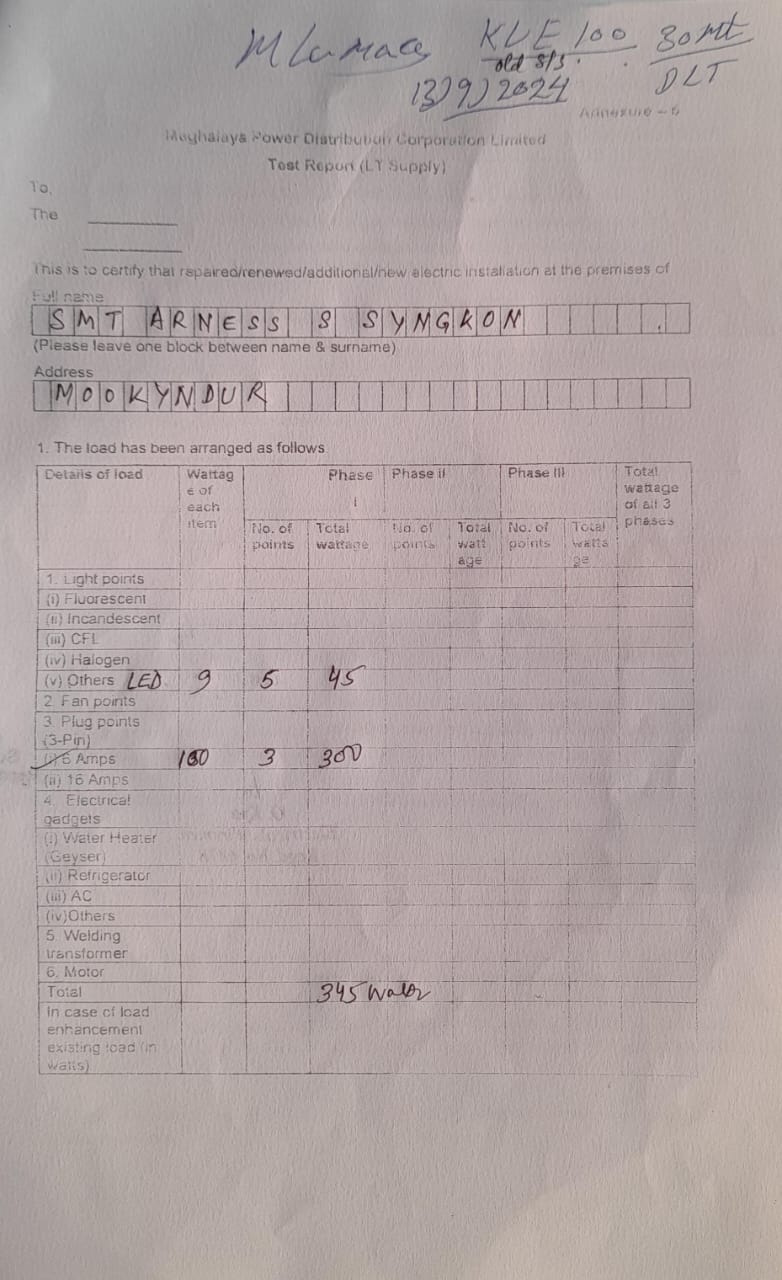 KLE 100 30 Mt
old S/S. DLT
13/9/2024
Annexure – 6
Meghalaya Power Distribution Corporation Limited
Test Report (LT Supply)
To,
The
This is to certify that repaired/renewed/additional/new electric installation at the premises of
Full name
SMT ARNESS S SYNGKON
(Please leave one block between name & surname)
Address
MOOKYNDUR
1. The load has been arranged as follows
Details of load Wattage of each item Phase I Phase II Phase III Total wattage of all 3 phases
No. of points Total wattage No. of points Total wattage No. of points Total wattage
1. Light points
(i) Fluorescent
(ii) Incandescent
(iii) CFL
(iv) Halogen
(v) Others LED 9 5 45
2. Fan points
3. Plug points
(3-Pin)
(i) 6 Amps 100 3 300
(ii) 16 Amps
4. Electrical
gadgets
(i) Water Heater
(Geyser)
(ii) Refrigerator
(iii) AC
(iv)Others
5. Welding
transformer
6. Motor
Total 345
In case of load
enhancement
existing load (in
watts)